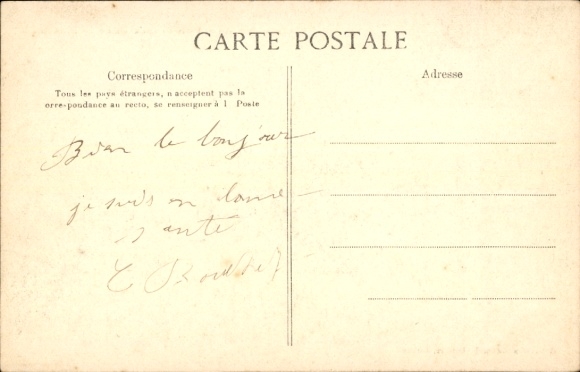 CARTE POSTALE
Correspondance
Tous les pays étrangers, n acceptent pas la
orre-pondance au recto, se renseigner à l Poste
Adresse
Bien le bonjour
je suis en bonne
santé